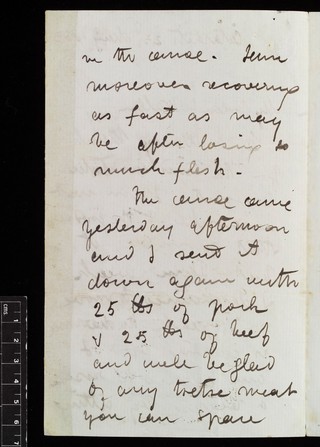 in the canoe. I am
moreover recovering
as fast as may
be after losing so
much flesh -
The canoe came
yesterday afternoon
and I sent it
down again with
25 lbs of pork
& 25 lbs of beef
and will be glad
of any tsetse meat
you can spare
cms.
1
2
3
4
5
6
7